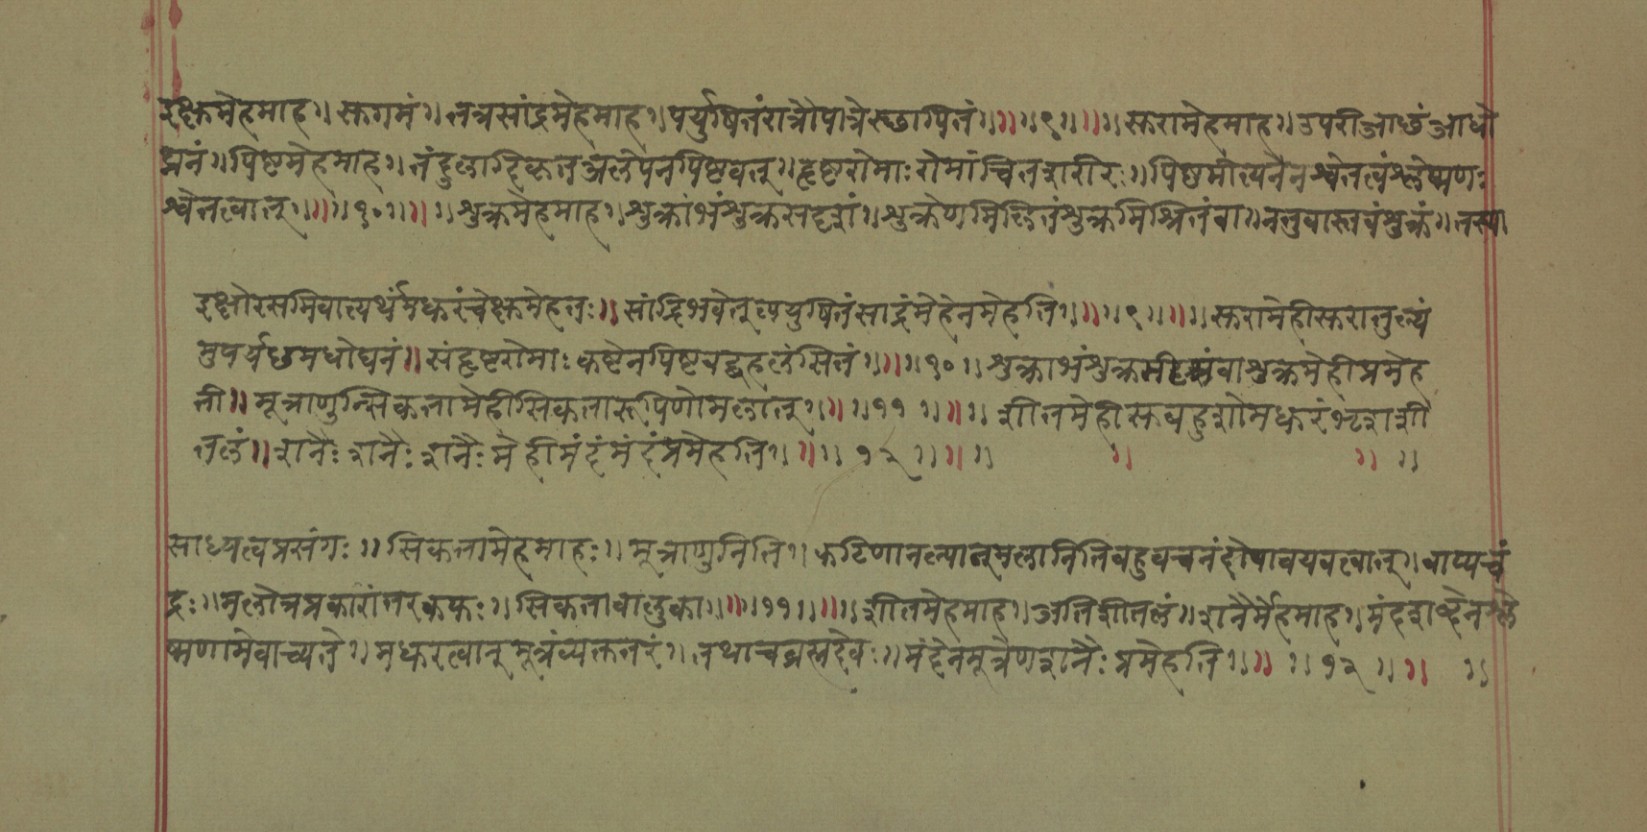 इक्षुमेहमाह ॥ सुगमं ॥ तत्र सांद्रमेहमाह ॥ पर्युषितं रात्रौ पात्रे स्छापितं ॥ ॥ ९ ॥ ॥ सुरामेहमाह ॥ उपरी आछं आधो
घनं ॥ पिष्टमेहमाह ॥ तंदुलादिकृत अलेपनपिष्टवत् ॥ हृष्टरोमाः रोमांचितशरीरः ॥ पिष्टमीत्यनेन श्वेतत्वं श्लेष्मणः
श्वेतत्वात् ॥ ॥ १० ॥ ॥ शुक्रमेहमाह ॥ शुक्राभं शुक्रसदृशं ॥ शुक्रेण मिलितं शुक्रमिश्रितं वा ॥ ननु वास्तवं शुक्रं ॥ तस्या
इक्षोरसमिवात्यर्थं मधुरं चेक्षुमेहतः ॥ सांद्रिभवेत् त्पयुषितं साद्रं मेहेन मेहति ॥ ॥ ९ ॥ ॥ सुरामेही सुरातुल्यं
मुपर्यछमधोघनं ॥ संहृष्टरोमाः कष्टेन पिष्टवद्बहलं सितं ॥ ॥ १० ॥ शुक्राभं शुक्रमिश्रं वा शुक्रमेही प्रमेह
ती ॥ मूत्राणुन्सिकतामेही सिकतारूपिणो मलात् ॥ ॥ ११ ॥ ॥ शीतमेही सुबहुशो मधुरं भृशशी
तलं ॥ शनैः शनैः शनैः मेही मंदं मंदं प्रमेहति ॥ ॥ १२ ॥ ॥ ॥ ॥ ॥
साध्यत्वप्रसंगः ॥ सिकतामेहमाहः ॥ मूत्राणुनिति ॥ कठिणानल्पान् मलानिति बहुवचनं दोषावयवत्वात् ॥ वाप्यचं
द्रः ॥ मलोत्र प्रकारांतर कफः ॥ सिकता वालुका ॥ ॥ ११ ॥ ॥ शीतमेहमाह ॥ अतिशीतलं ॥ शनैर्मेहमाह ॥ मंदशब्देन श्ले
ष्मणामेवाच्यते ॥ मधुरत्वात् मूत्रं व्यक्ततरं ॥ तथाच ब्रह्मदेवः ॥ मंदेन मूत्रेण शनैः प्रमेहति ॥ ॥ १२ ॥ ॥ ॥